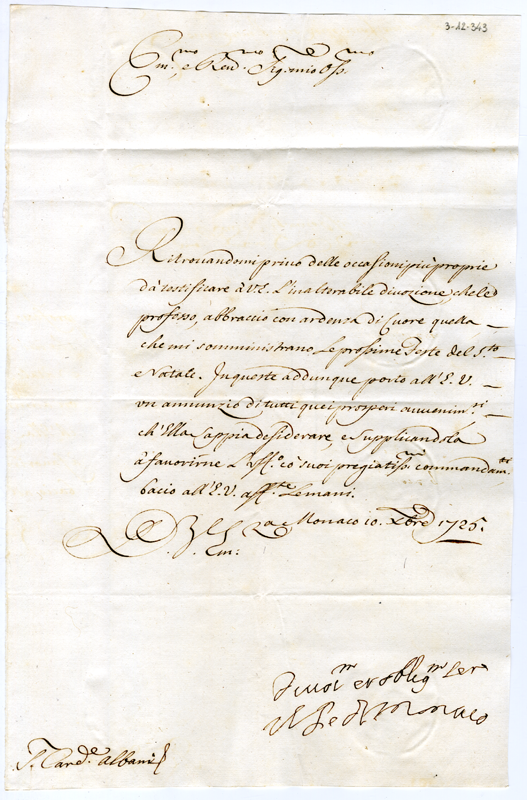 3-12-343
Em.mo e Rev.mo Sig.re mio Oss.mo
Ritrovandomi privo delle occasioni più proprie
da testificare à V.E. l'inalterabile divozione, che le
professo, abbraccio con ardenza di Cuore quella
che mi somministrano le prossime Feste del S.to
Natale. In queste addunque porto all'E.V.
un annunzio di tutti quei prosperi avvenim.ti
ch'Ella sappia desiderare, e supplicandola
à favorirne l'aff.o cò suoi pregiatiss.mi commandam.ti
bacio all'E.V. aff.te le mani.
D. V. Em:za Monaco 10. Xbre 1725.
Divot.mo et obblig.mo Ser.e
Il Pe di Monaco
S.r Card.e Albani